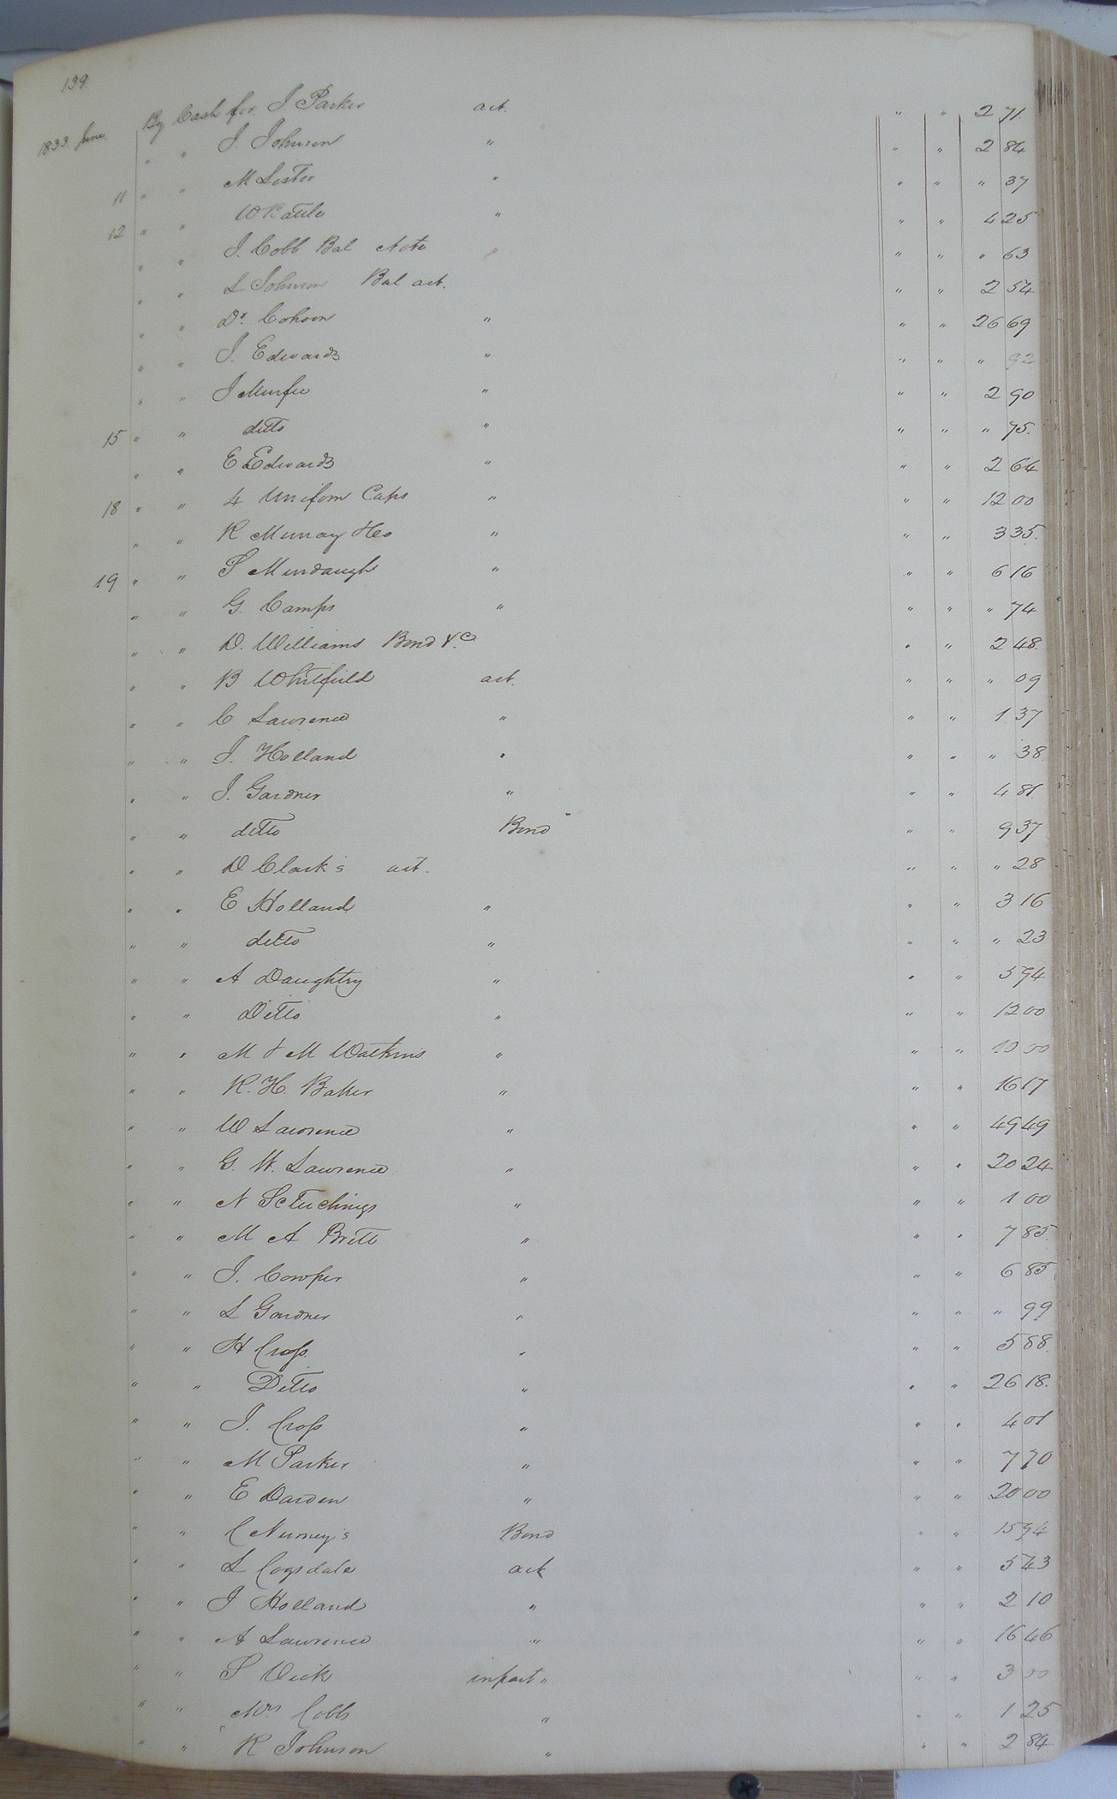 139.
1833 June By Cash for J Parker act " " 2 71
" " J. Johnson " " " 2 84
11 " " M Lester " " " " 37
12 " " W " " " 4 25
" " J. Cobb Bal Note " " " " 63
" " L Johnson Bal act. " " 2 54
" " Dr. Cohoon " " " 26 69
" " J. Edwards " " " " 92
" " J Murfee " " " 2 90
15 " " ditto " " " " 75.
" " E Edwards " " " 2 64
18 " " 4 Uniform Caps " " " 12 00
" " R Murray " " " 3 35.
19 " " S Murdaugh " " " 6 16
" " G. Camps " " " " 74
" " D. Williams Bond &c " " 2 48.
" " B Whitfield act. " " " 09
" " C Lawrence " " " 1 37
" " J. Holland " " " " 38
" " J. Gardner " " " 4 81
" " ditto Bond " " 9 37
" " D Clark's act. " " " 28
" " E Holland " " " 3 16
" " ditto " " " " 23
" " A Daughtry " " " 5 94
" " Ditto " " " 12 00
" " M & M Watkins " " " 10 00
" " R. H. Baker " " " 16 17
" " W Lawrence " " " 49 49
" " G. W. Lawrence " " " 20 24
" " N " " " 1 00
" " M A Britt " " " 7 85
" " J. Cowper " " " 6 85
" " L Gardner " " " " 99
" " H Cross " " " 5 88.
" " Ditto " " " 26 18.
" " J. Cross " " " 4 01
" " M Parker " " " 7 70
" " E Darden " " " 20 00
" " C Nurney's Bond " " 15 94
" " L Cogsdale act " " 5 43
" " J Holland " " " 2 10
" " A Lawrence " " " 16 46
" " S Vick in part " " " 3 00
" " Mrs Cobb " " " 1 25
" " R Johnson " " " 2 84